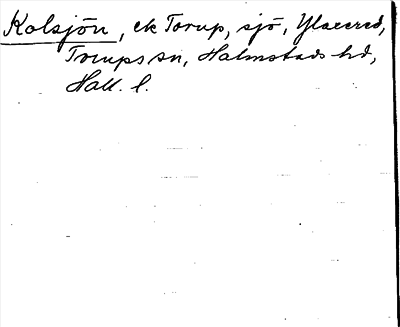 Kolsjön, ek Torup, sjö, Ylsered,
Torups sn, Halmstads hd,
Hall. l.